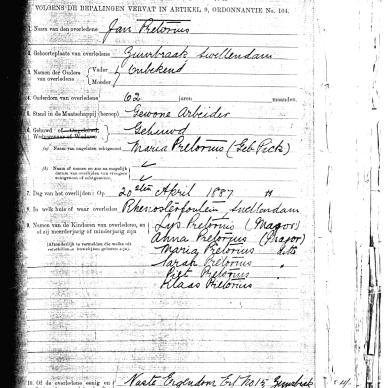 VOLGENS DE BEPALINGEN VERVAT IN ARTIKEL 9, ORDONNANTIE No. 104.
1. Naam van den overledene Jan Pretorius
2. Geboorteplaats van overledene Zuurbraak Swellendam
3. Namen der Ouders van overledene { Vader Moeder } Onbekend
4. Ouderdom van overledene 62 jaren maanden.
5. Stand in de Maatschappij (beroep) Gewone Arbeider
6. Gehuwd of Ongehuwd, Weduwenaar of Weduwe Gehuwd
(a) Naam van nagelaten echtgenoot Maria Pretorius (Geb
(b) Naam of namen en zoo mogelijk datum van overlijden van vroegere echtgenoot of echtgenooten. ✓
7. Dag van het overlijden: Op 20sten April 1887
8. In welk huis of waar overleden Rhenosterfontein, Swellendam
9. Namen van de Kinderen van overledene, en of zij meerderjarig of minderjarig zijn
Pretorius (Majoor)
Anna Pretorius (Majoor)
Maria Pretorius ditto
Sarah Pretorius "
Piet Pretorius "
Klaas Pretorius
10. Of de overledene eenig en Vaste Eigendom Erf No 15 Zuurbraak